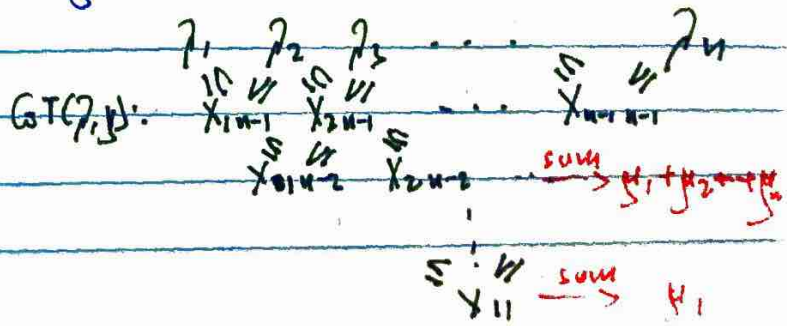 λ₁ λ₂ λ₃ . . . λₙ
GT(λ,μ): X₁ₙ₋₁ X₂ₙ₋₁ . . . Xₙ₋₁ₙ₋₁
X₁ₙ₋₂ X₂ₙ₋₂ sum → μ₁+μ₂
X₁₁ sum → μ₁